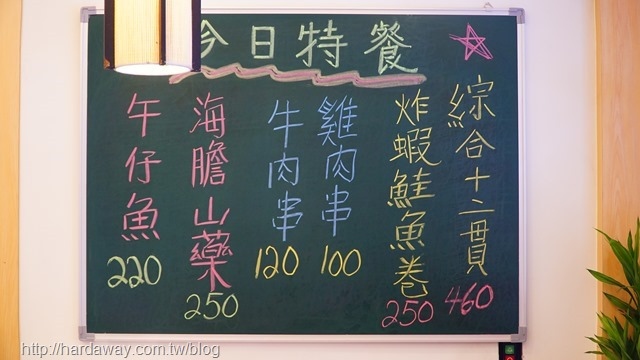 今日特餐
綜合十二貫 460
炸蝦鮭魚卷 250
雞肉串 100
牛肉串 120
海膽山藥 250
午仔魚 220
http://hardaway.com.tw/blog